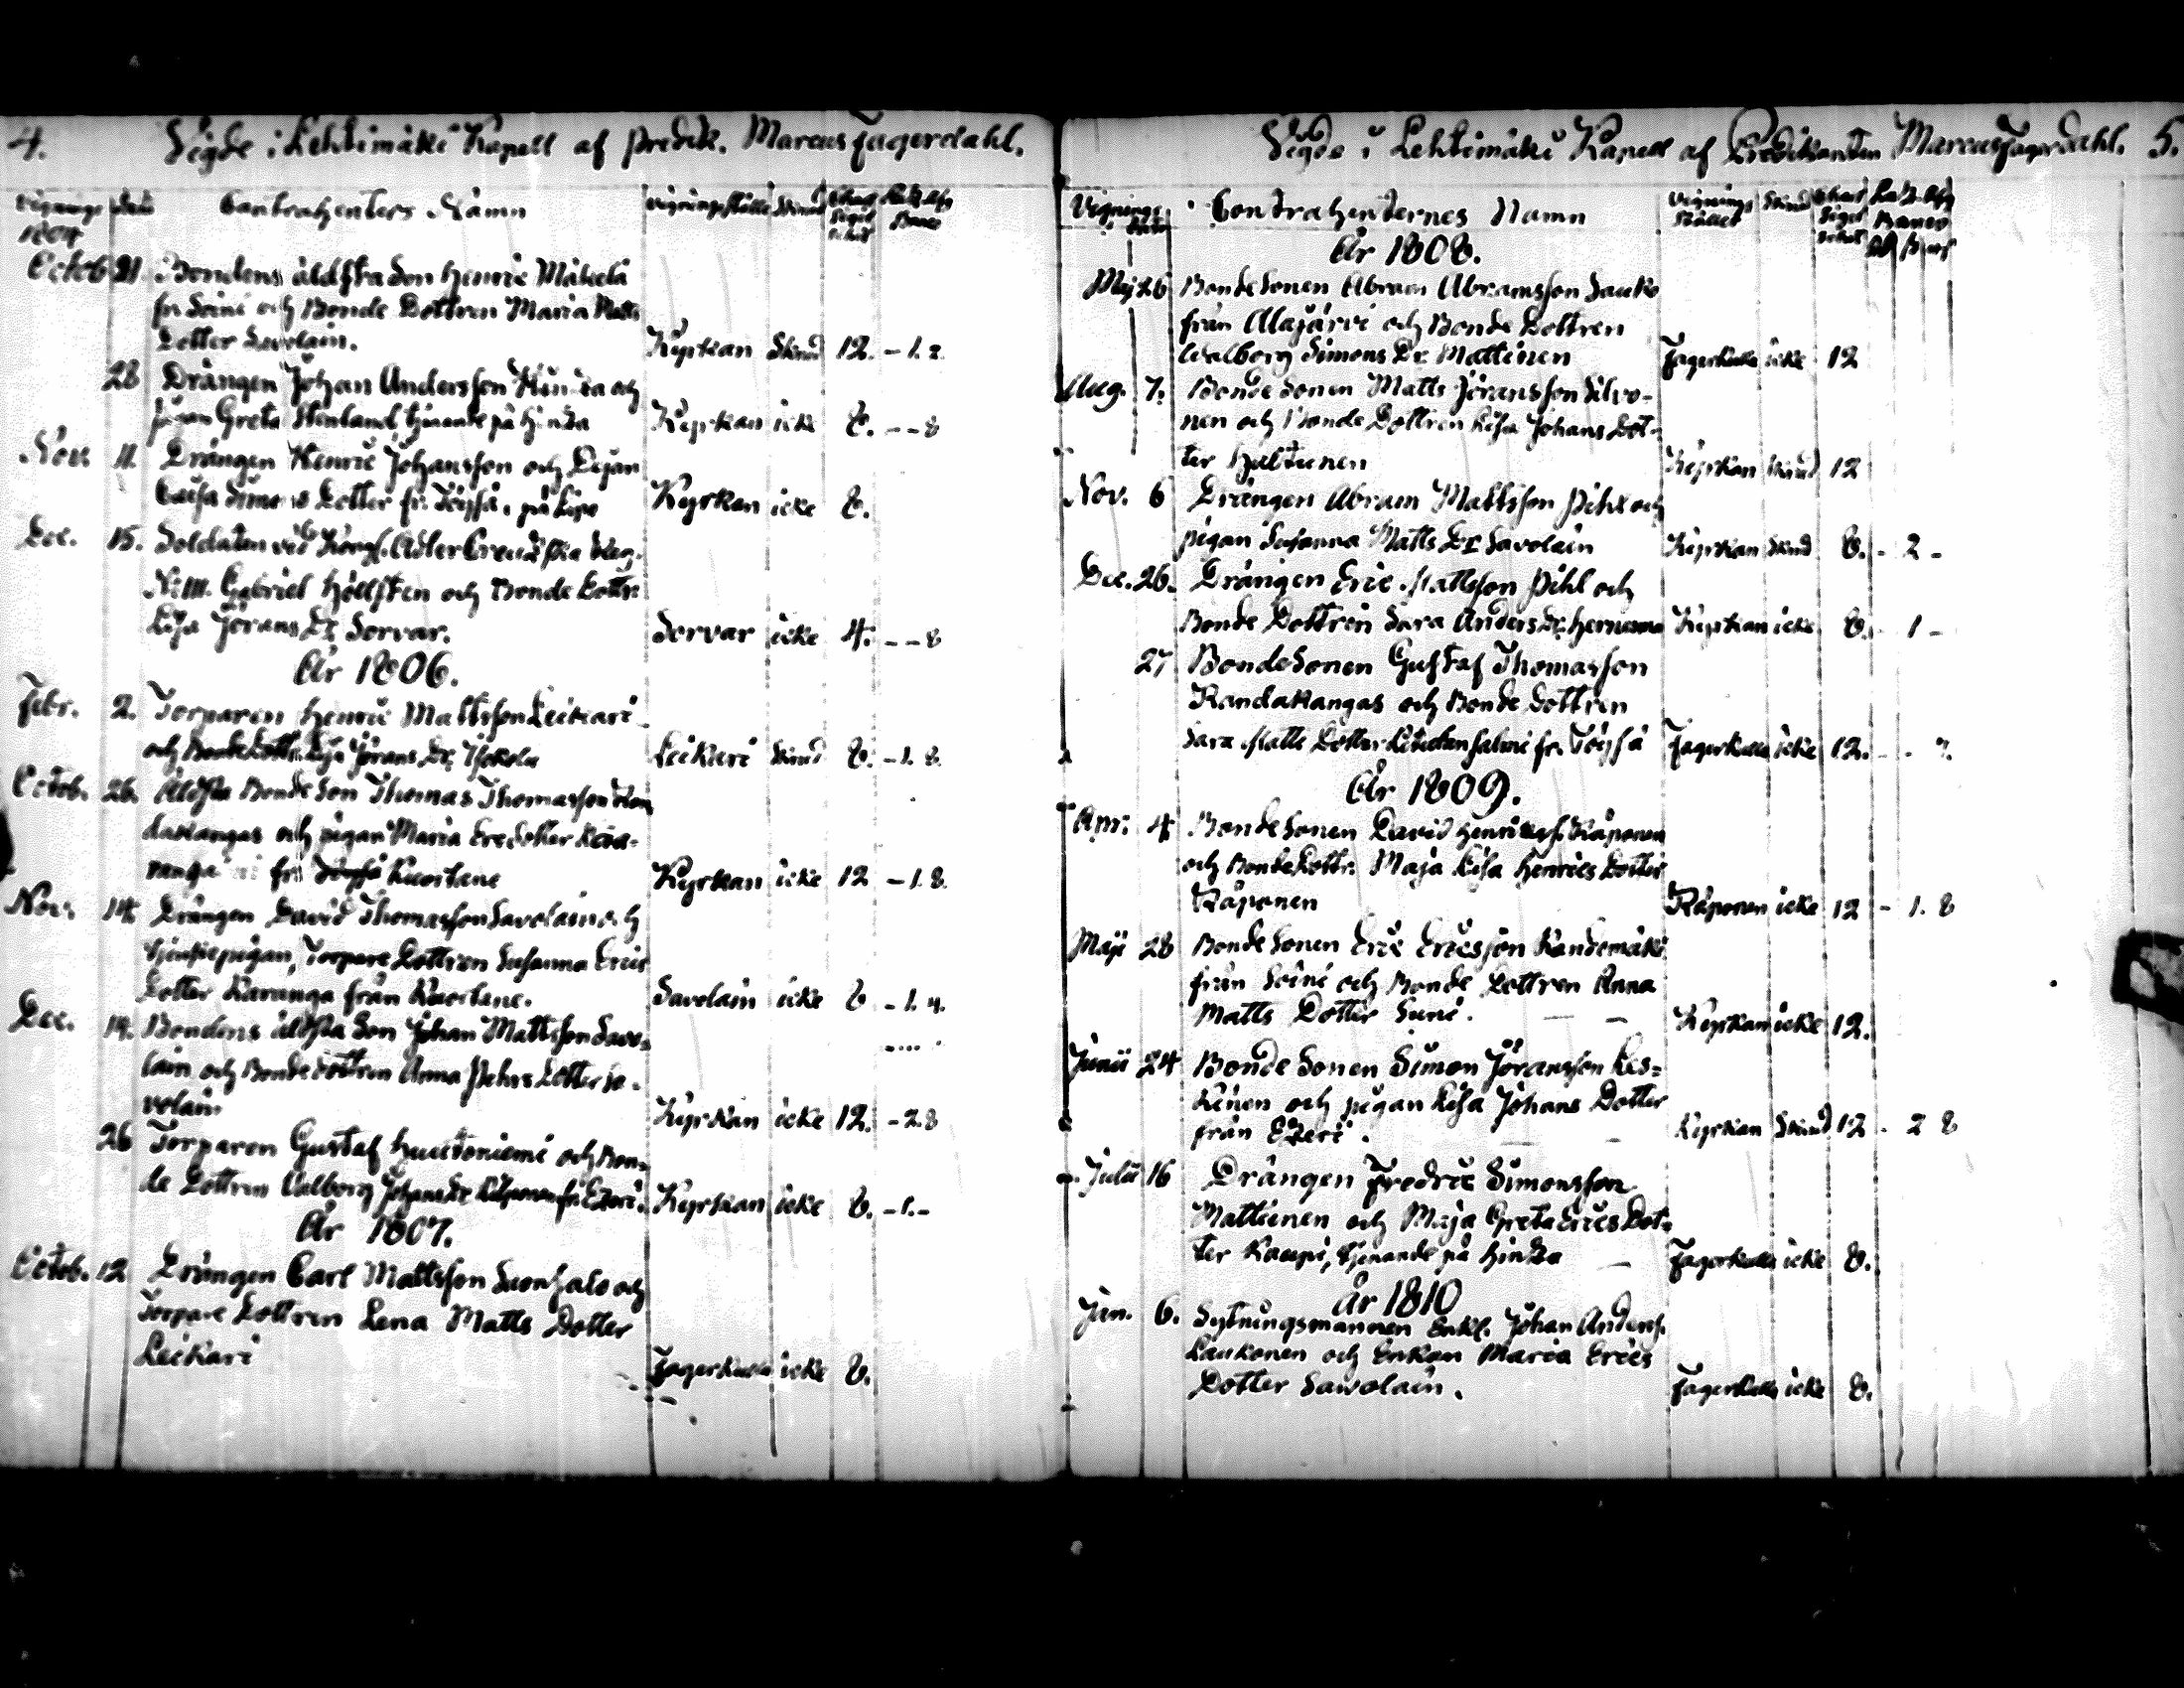 4. Vigde i Lehtimäki Kapell af Predik. Marcus Fagerdahl.
Contrahenters Namn
Vigningsställe
1804
Octob 21. Bondens äldsta Son Henric Mäkelä
fr Soini och Bonde Dottren Maria Matts
Dotter Savolain. Kyrkan Skrud 12. – 1. 2.
28 Drängen Johan Andersson och
pigan Greta Stenland, tjenande på Kyrkan icke 8. – – 8
Nov. 11. Drängen Henric Johansson och
Caisa Simons Dotter fr. Töysä, på Kyrkan icke 8.
Dec. 15. Soldaten vid Kongl. AdlerCreutzska Reg.
Gabriel Hällsten och Bonde Dottr:
Lisa Jörans Dr Sorvar. Sorvar icke 4: – – 8
År 1806.
Febr. 2. Torparen Henric Mattsson Leikari
och Bonde Dottr. Lisa Jörans Dr Leikari Skrud 8. – 1. 8.
Octob. 26. Äldsta Bonde Son Thomas Thomasson Kan
dakangas och pigan Maria Ers Dotter
fr. Töysä Kuortane Kyrkan icke 12 – 1. 8.
Nov. 14. Drängen David Thomasson Savolain och
tjenstepigan, Torpare Dottren Susanna Erics
Dotter Karanga från Kuortane. Savolain icke 8 – 1. 4.
Dec. 19. Bondens äldsta Son Johan Mattsson Savo=
lain och Bonde dottren Anna Pehrs Dotter Sa=
volain Kyrkan icke 12. – 2. 8
26 Torparen Gustaf Huutoniemi och Bon=
de Dottren Valborg Johans Dr fr. Etzeri. Kyrkan icke 8. – 1. –
År 1807.
Octob. 12 Drängen Carl Mattsson Suonsalo och
Torpare Dottren Lena Matts Dotter
Leikari Fagerkulla icke 8.
Vigde i Lehtimäki Kapell af Predikanten Marcus Fagerdahl. 5.
Vignings Contrahenternes Namn Vignings
Stället
År 1808.
Maj 26 Bonde Sonen Abram Abramsson Sauko
från Alajärvi och Bonde Dottren
Walborg Simons Dr. Mattinen Fagerkulla icke 12
Aug. 7. Bonde Sonen Matts Jöransson Silvo-
nen och Bonde Dottren Lisa Johans Dot-
ter Hultunen Kyrkan Skrud 12
Nov. 6 Drängen Abram Mattsson Pihl och
pigan Susanna Matts Dr Savolain Kyrkan Skrud 8. – 2 –
Dec. 26. Drängen Eric Mattsson Pihl och
Bonde Dottren Sara Anders Dr. Kyrkan icke 8. – 1 –
27 Bonde Sonen Gustaf Thomasson
Kandakangas och Bonde Dottren
Sara Matts Dotter fr. Töysä Fagerkulla icke 12.
År 1809.
Apr: 4 Bonde Sonen David Henricss. Räponen
och Bonde Dottr. Maja Lisa Henrics Dotter
Räponen Räponen icke 12 – 1. 8
Maji 28 Bonde Sonen Eric Ericsson Kandemäki
från Soini och Bonde Dottren Anna
Matts Dotter Suni. Kyrkan icke 12.
Junii 24 Bonde Sonen Simon Jöransson Kes=
kinen och pigan Lisa Johans Dotter
från Etzeri. Kyrkan Skrud 12 – 2 8
Julii 16 Drängen Fredric Simonsson
Mattinen och Maja Greta Erics Dot=
ter Kaupi, tjenande på Hintza Fagerkulla icke 8.
År 1810
Jan. 6. Sytningsmannen Enkl. Johan Anderss.
Laukonen och Enkan Maria Erics
Dotter Sawolain. Fagerkulla icke 8.